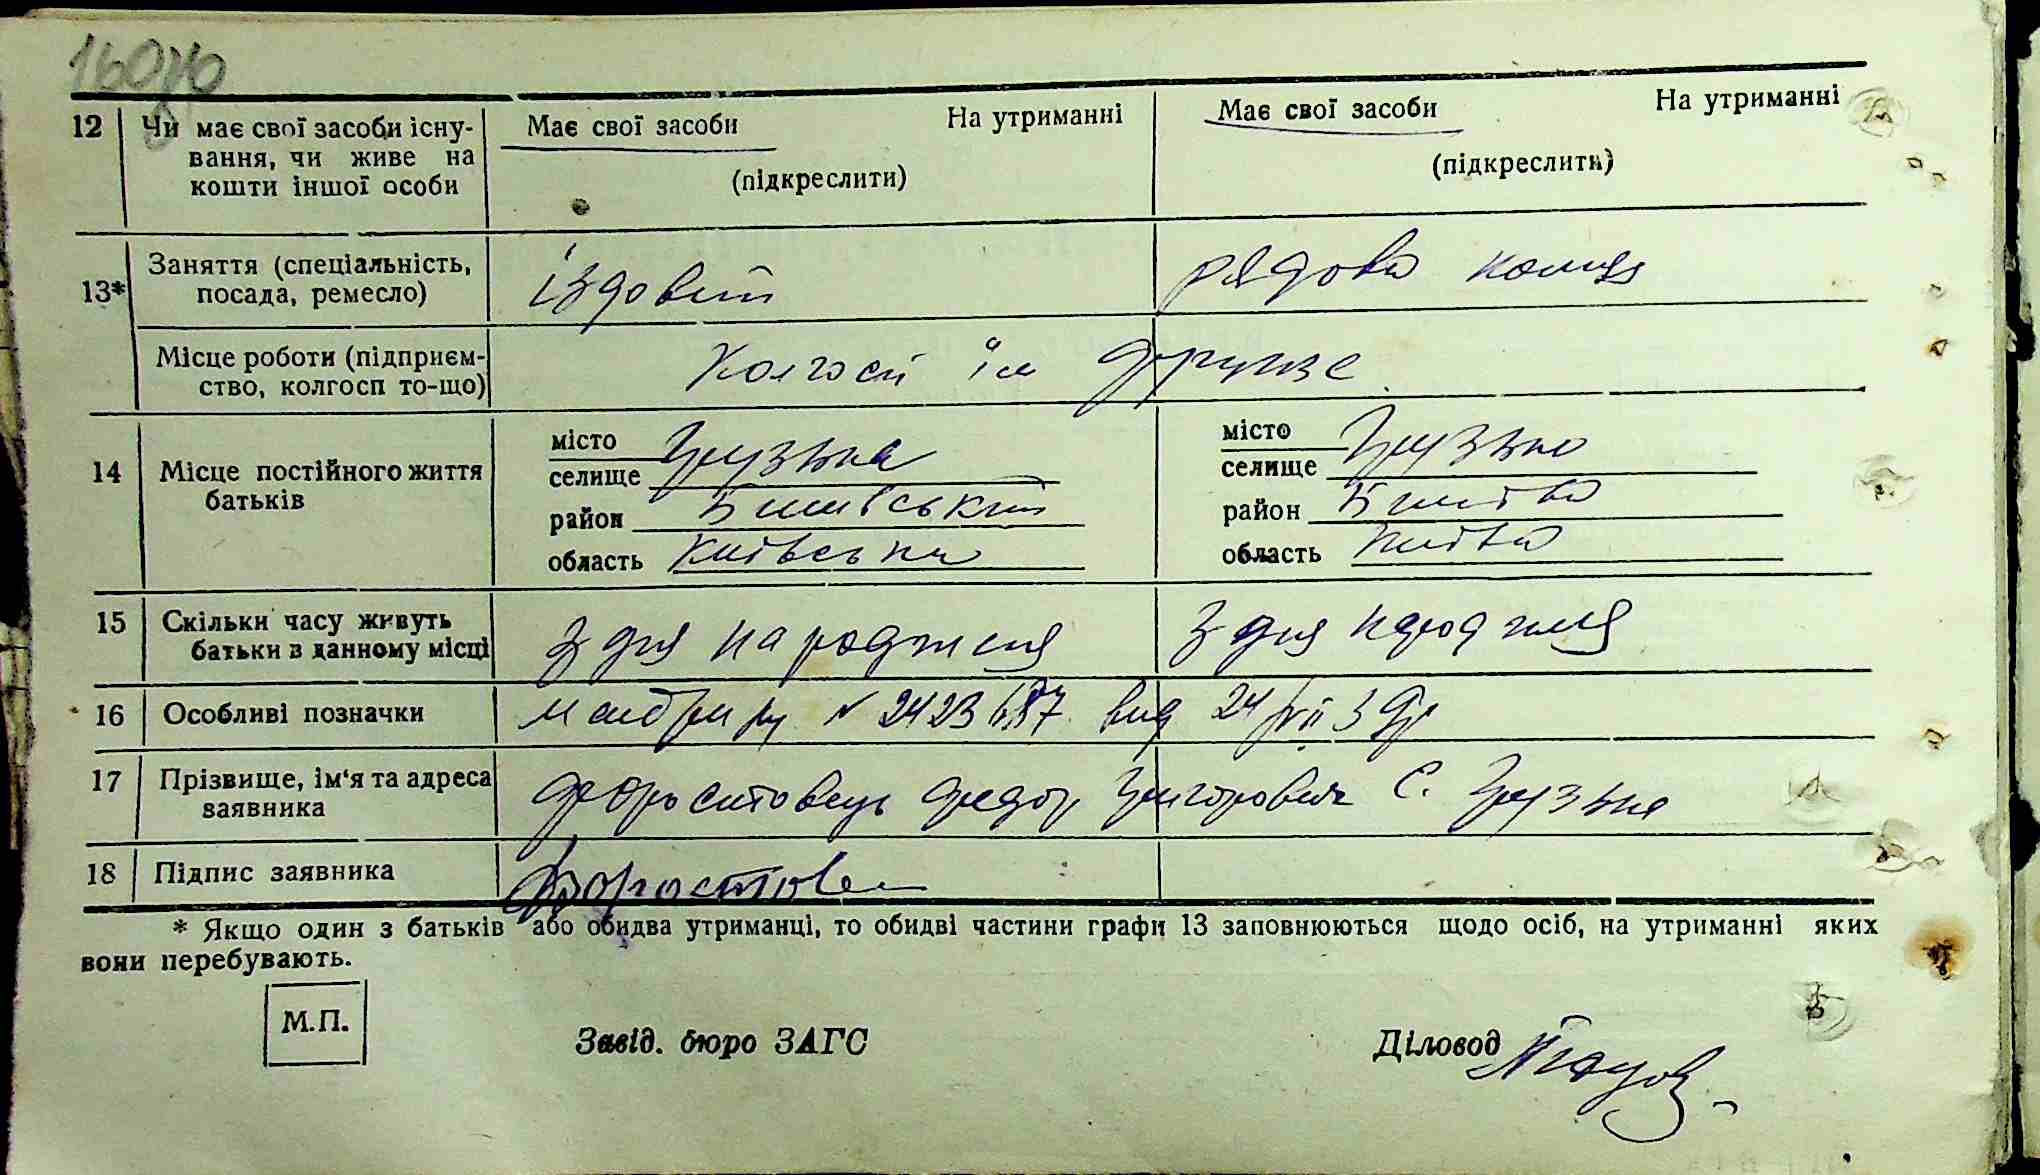 160
12 Чи має свої засоби існу-
вання, чи живе на
кошти іншої особи
Має свої засоби На утриманні
(підкреслити)
Має свої засоби На утриманні
(підкреслити)
13* Заняття (спеціальність,
посада, ремесло)
їздовий
рядова колг
Місце роботи (підприєм-
ство, колгосп то-що)
Колгосп їм Фрунзе
14 Місце постійного життя
батьків
місто
селище Грузьке
район Бишівський
область Київська
місто
селище Грузьке
район
область
15 Скільки часу живуть
батьки в данному місці
З дня народження
З дня
16 Особливі позначки
№ 2423 від 24
17 Прізвище, ім'я та адреса
заявника
Форостовець Федор Григорович С. Грузьке
18 Підпис заявника
Форостовец
* Якщо один з батьків або обидва утриманці, то обидві частини графи 13 заповнюються щодо осіб, на утриманні яких
вони перебувають.
М.П.
Завід. бюро ЗАГС
Діловод